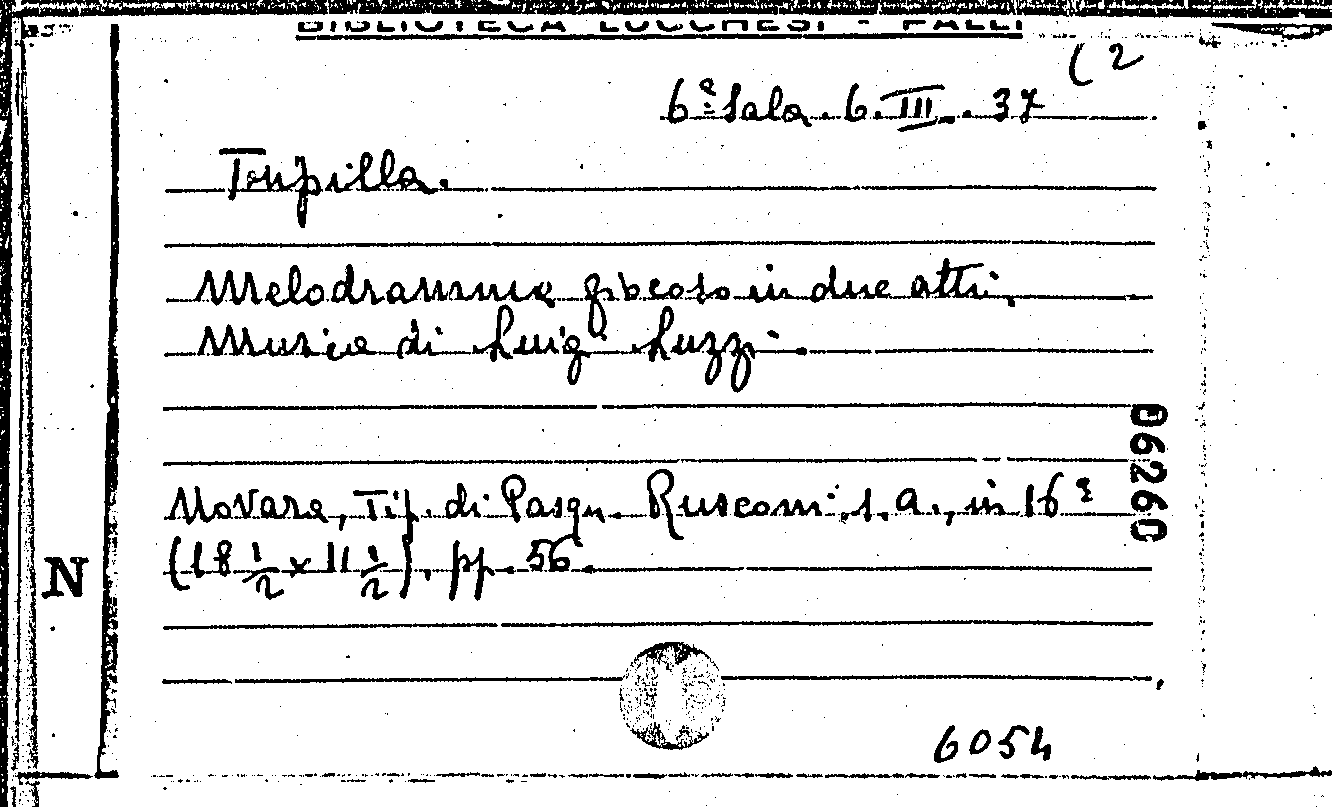 BIBLIOTECA LUCCHESI - PALLI
(2
6ª Sala. 6. III. 37
Tripilla.
Melodramma giocoso in due atti.
Musica di Luigi Luzzi.
Novara, Tip. di Pasqu. Rusconi, s. a., in 16º
(18 1/2 x 11 1/2), pp. 56.
N
06260
6054